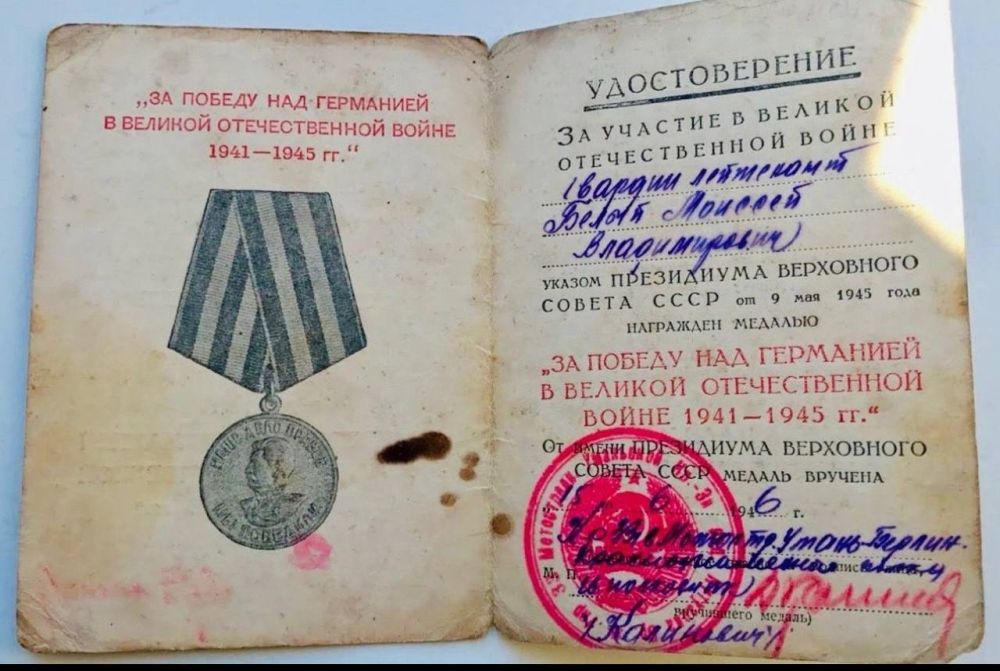 „ЗА ПОБЕДУ НАД ГЕРМАНИЕЙ
В ВЕЛИКОЙ ОТЕЧЕСТВЕННОЙ ВОЙНЕ
1941—1945 гг.“
НАШЕ ДЕЛО ПРАВОЕ
МЫ ПОБЕДИЛИ
УДОСТОВЕРЕНИЕ
ЗА УЧАСТИЕ В ВЕЛИКОЙ
ОТЕЧЕСТВЕННОЙ ВОЙНЕ
Гвардии лейтенант
Белый Моисей
Владимирович
УКАЗОМ ПРЕЗИДИУМА ВЕРХОВНОГО
СОВЕТА СССР от 9 мая 1945 года
НАГРАЖДЕН МЕДАЛЬЮ
„ЗА ПОБЕДУ НАД ГЕРМАНИЕЙ
В ВЕЛИКОЙ ОТЕЧЕСТВЕННОЙ
ВОЙНЕ 1941—1945 гг.“
От имени ПРЕЗИДИУМА ВЕРХОВНОГО
СОВЕТА СССР МЕДАЛЬ ВРУЧЕНА
15 6 1946 г.
Умань-Берлин-
М. П.
вручившего медаль)
Калинович